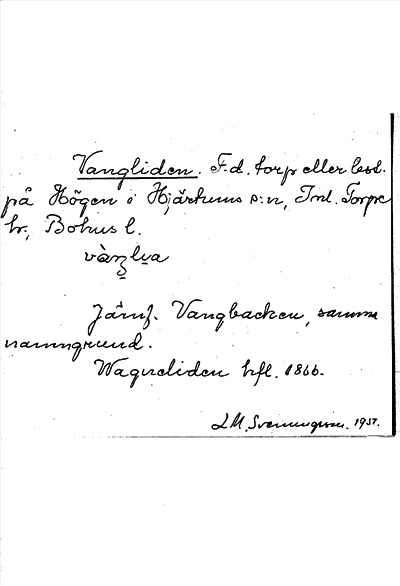 Vangliden. F.d. torp eller best.
på Högen i Hjärtums s:n, Inl. Torpe
hr, Bohus l.
Jämf. Vangbacken, samma
namngrund.
Wagneliden hfl. 1866.
L M. Svenungsson. 1957.